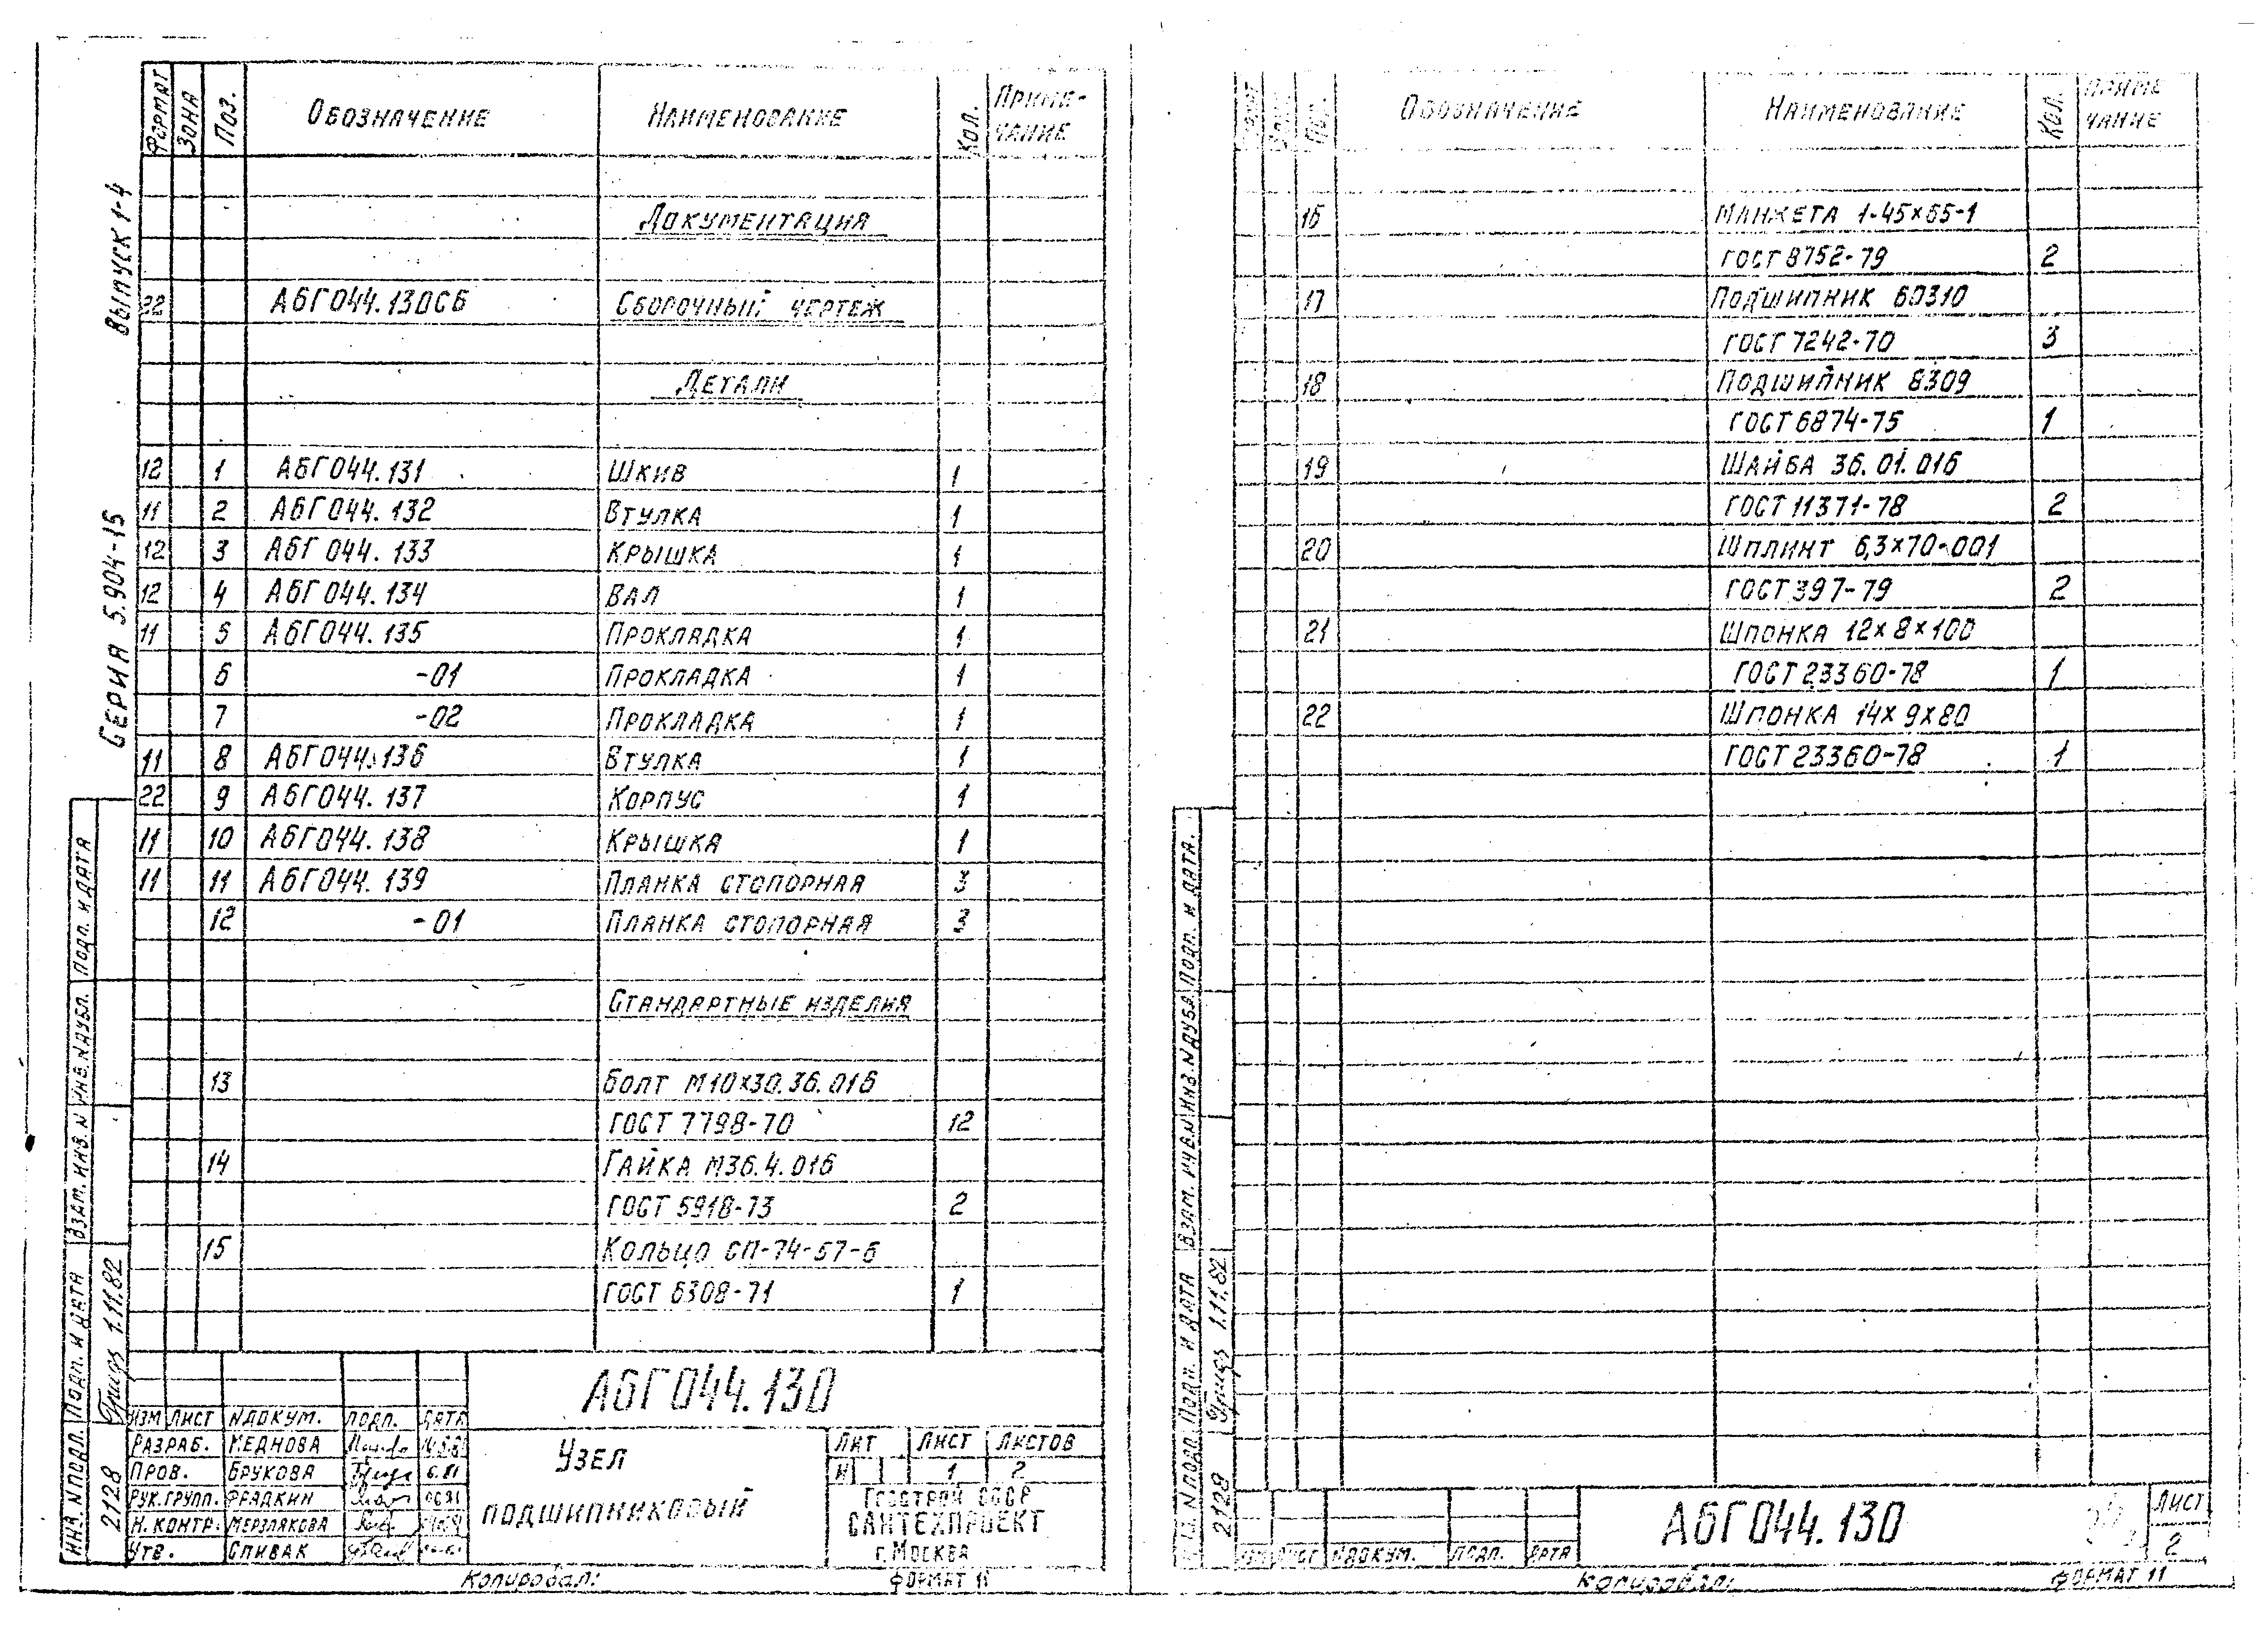 Серия 5.904-15 Выпуск 1-4
Формат Зона Поз. Обозначение Наименование Кол. Приме-
чание
Документация
22 А6Г044.130СБ Сборочный чертеж
Детали
12 1 А6Г044.131 Шкив 1
11 2 А6Г044.132 Втулка 1
12 3 А6Г044.133 Крышка 1
12 4 А6Г044.134 Вал 1
11 5 А6Г044.135 Прокладка 1
6 -01 Прокладка 1
7 -02 Прокладка 1
11 8 А6Г044.136 Втулка 1
22 9 А6Г044.137 Корпус 1
11 10 А6Г044.138 Крышка 1
11 11 А6Г044.139 Планка стопорная 3
12 -01 Планка стопорная 3
Стандартные изделия
13 Болт М10×30.36.016
ГОСТ 7798-70 12
14 Гайка М36.4.016
ГОСТ 5918-73 2
15 Кольцо СП-74-57-6
ГОСТ 6308-71 1
Инв. № подл. Подп. и дата Взам. инв. № Инв. № дубл. Подп. и дата
2128 1.11.82
А6Г044.130
Изм Лист № докум. Подп. Дата
Разраб. Меднова
Пров. Брукова 6.81
Рук. групп. Фрадкин
Н. контр. Мерзлякова
Утв. Спивак
Узел
подшипниковый
Лит Лист Листов
И 1 2
Госстрой СССР
Сантехпроект
г. Москва
Копировал: Формат 11
Поз. Обозначение Наименование Кол. Приме
чание
16 Манжета 1-45×65-1
ГОСТ 8752-79 2
17 Подшипник 60310
ГОСТ 7242-70 3
18 Подшипник 8309
ГОСТ 6874-75 1
19 Шайба 36.01.016
ГОСТ 11371-78 2
20 Шплинт 6,3×70-001
ГОСТ 397-79 2
21 Шпонка 12×8×100
ГОСТ 23360-78 1
22 Шпонка 14×9×80
ГОСТ 23360-78 1
Инв. № подл. Подп. и дата Взам. инв. № Инв. № дубл. Подп. и дата.
2128 1.11.82
Изм Лист № докум. Подп. Дата
А6Г044.130
Лист
2
Копировал: Формат 11